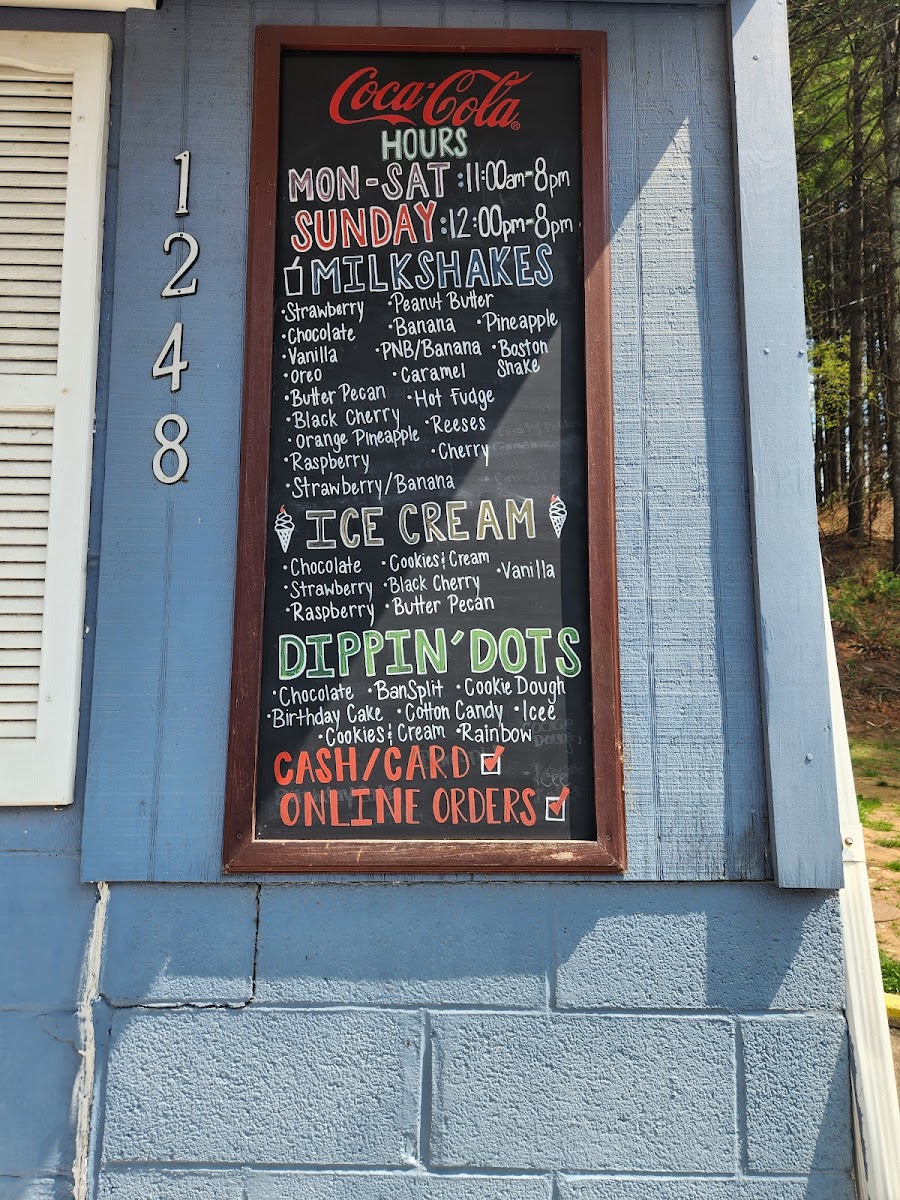 1248
Coca-Cola®
HOURS
MON-SAT :11:00am-8pm
SUNDAY :12:00pm-8pm
MILKSHAKES
•Strawberry •Peanut Butter
•Chocolate •Banana •Pineapple
•Vanilla •PNB/Banana •Boston Shake
•Oreo •Caramel
•Butter Pecan •Hot Fudge
•Black Cherry •Reeses
•Orange Pineapple
•Raspberry •Cherry
•Strawberry/Banana
ICE CREAM
•Chocolate •Cookies & Cream •Vanilla
•Strawberry •Black Cherry
•Raspberry •Butter Pecan
DIPPIN' DOTS
•Chocolate •BanSplit •Cookie Dough
•Birthday Cake •Cotton Candy •Icee
•Cookies & Cream •Rainbow
CASH/CARD
ONLINE ORDERS